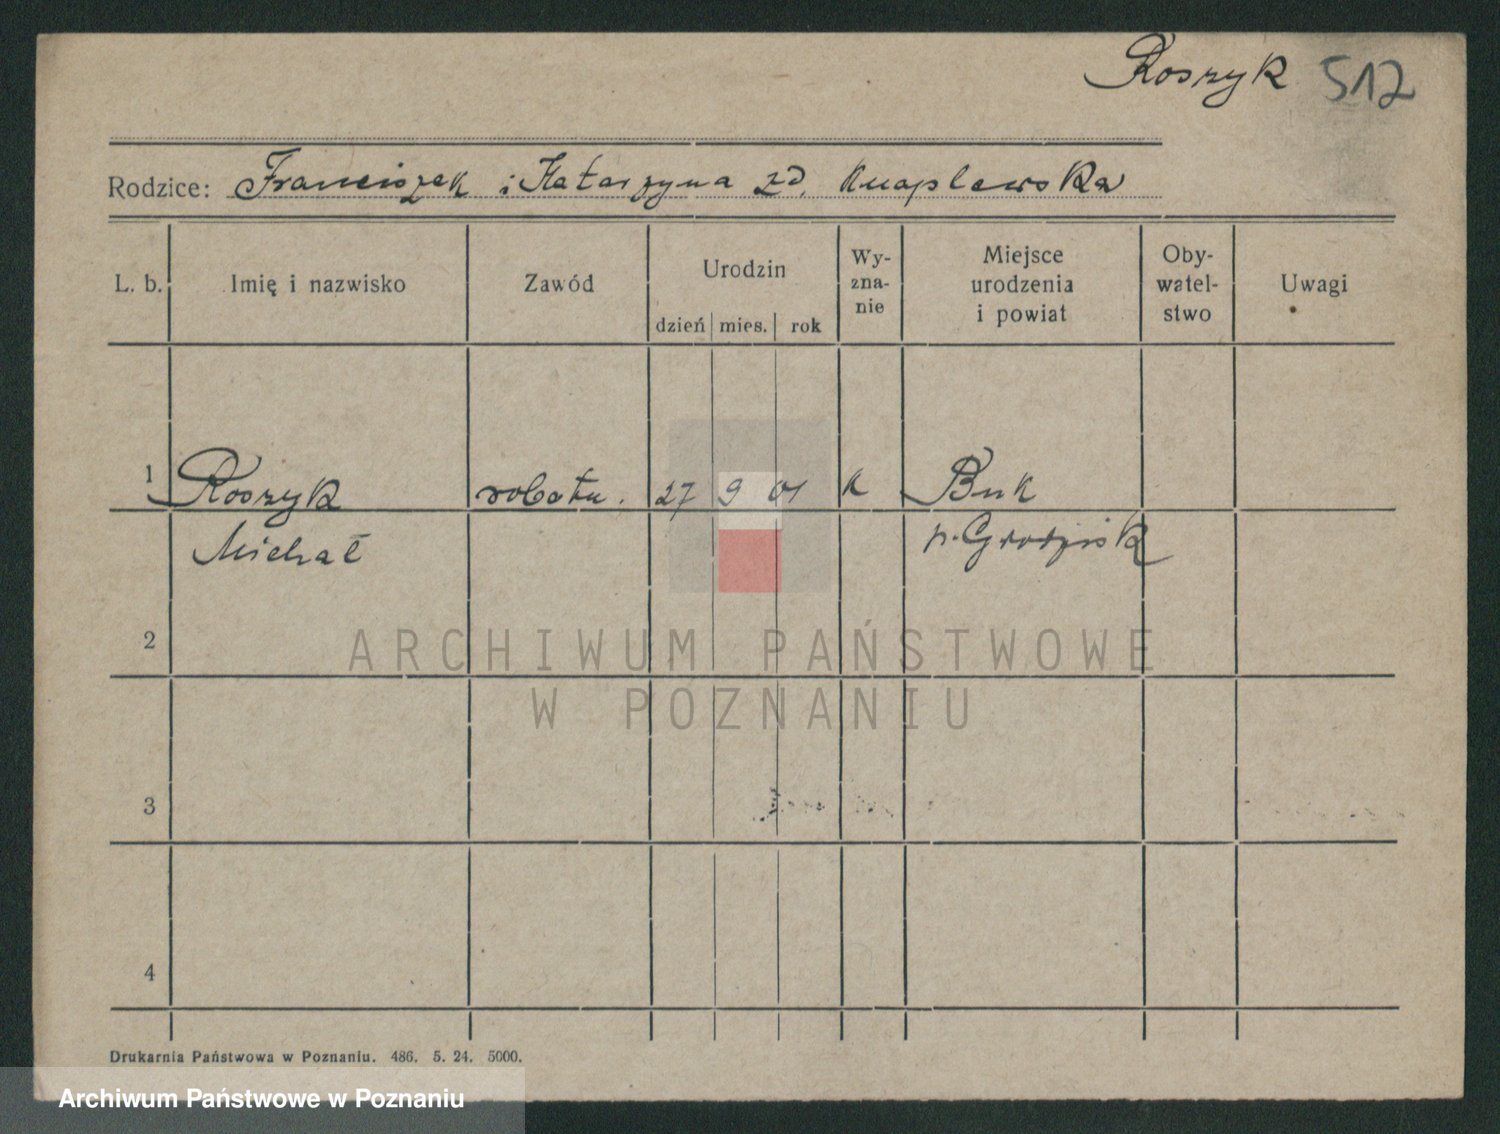 Roszyk 512
Rodzice: Franciszek i Katarzyna zd. Knaplewska
L. b. Imię i nazwisko Zawód Urodzin dzień mies. rok Wy-zna-nie Miejsce urodzenia i powiat Oby-watel-stwo Uwagi
1 Roszyk robotn. 27 9 01 k Buk
Michał p. Grodzisk
2
ARCHIWUM PAŃSTWOWE
W POZNANIU
3
4
Drukarnia Państwowa w Poznaniu. 486. 5. 24. 5000.
Archiwum Państwowe w Poznaniu